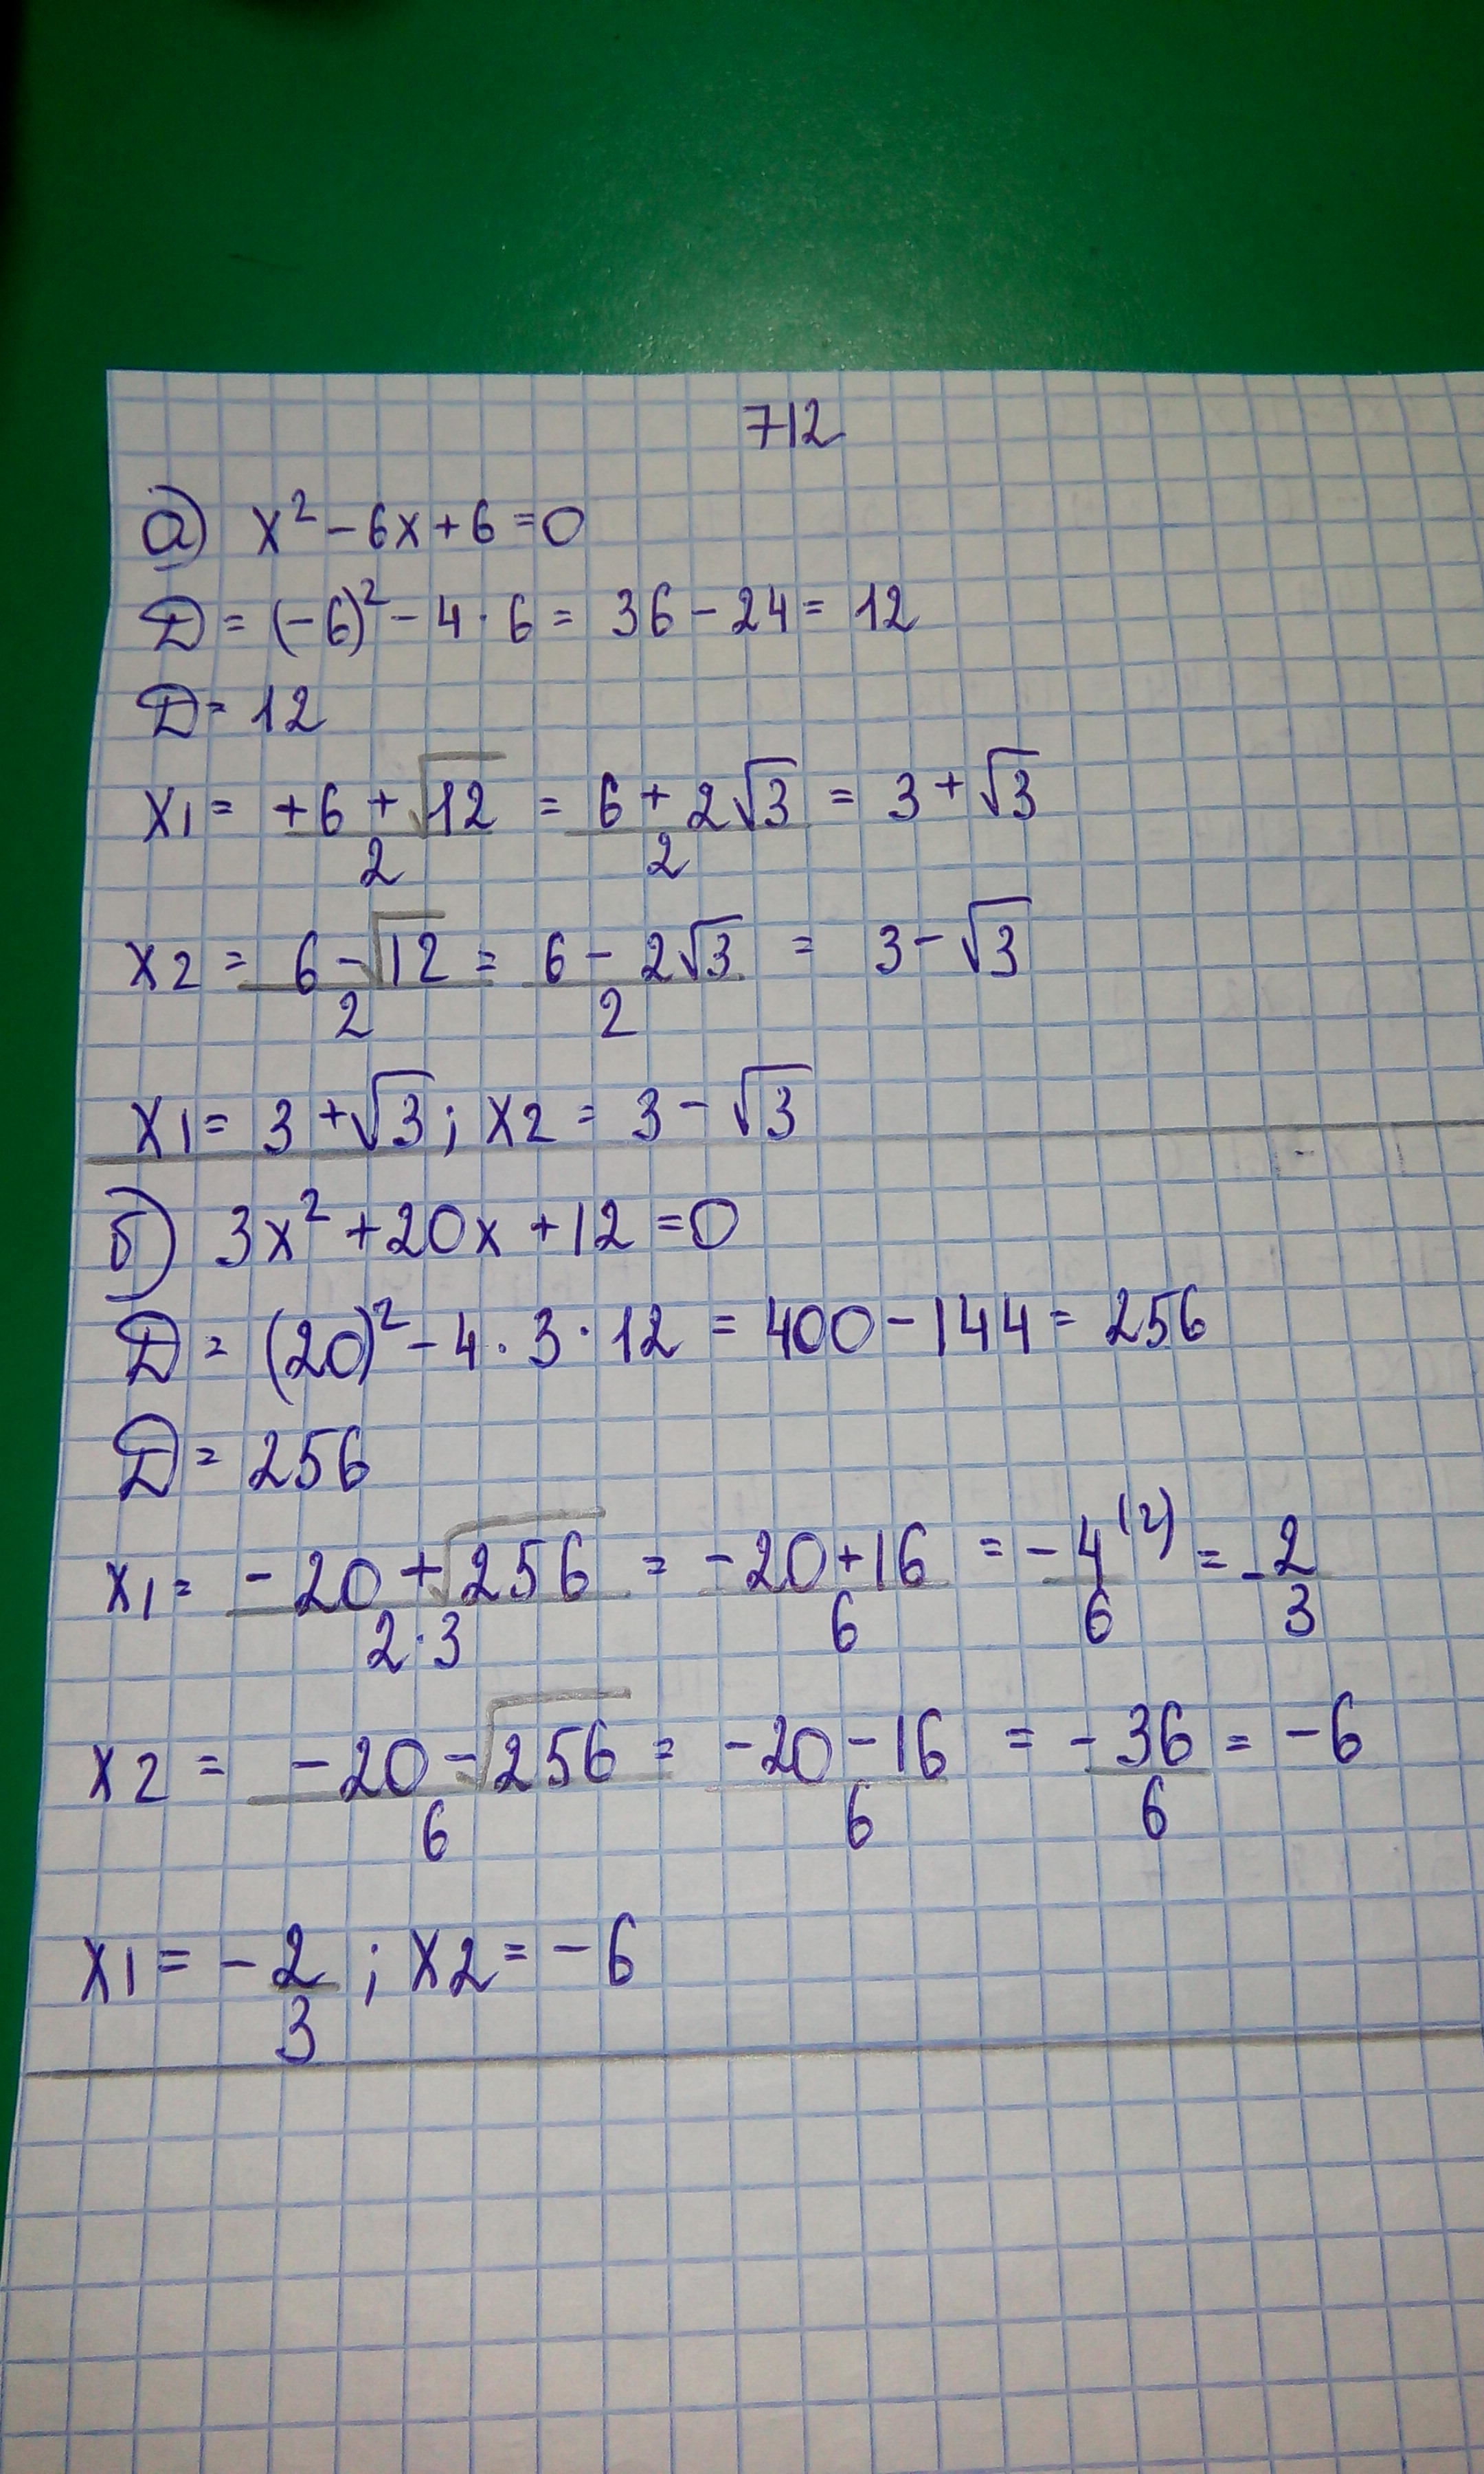 712
а) x² - 6x + 6 = 0
D = (-6)² - 4 · 6 = 36 - 24 = 12
D = 12
x1 = +6 + √12 / 2 = 6 + 2√3 / 2 = 3 + √3
x2 = 6 - √12 / 2 = 6 - 2√3 / 2 = 3 - √3
x1 = 3 + √3 ; x2 = 3 - √3
б) 3x² + 20x + 12 = 0
D = (20)² - 4 · 3 · 12 = 400 - 144 = 256
D = 256
x1 = -20 + √256 / 2·3 = -20 + 16 / 6 = -4 ⁽²⁾ / 6 = -2 / 3
x2 = -20 - √256 / 6 = -20 - 16 / 6 = -36 / 6 = -6
x1 = -2 / 3 ; x2 = -6